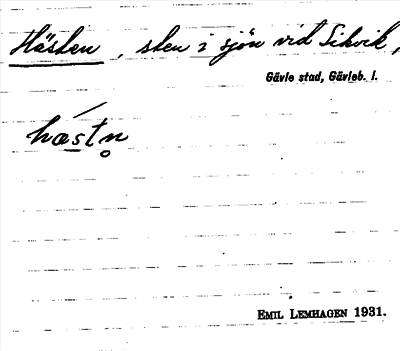 Hästen, sten i sjön vid Sikvik,
Gävle stad, Gävleb. l.
hæstn̥
EMIL LEMHAGEN 1931.